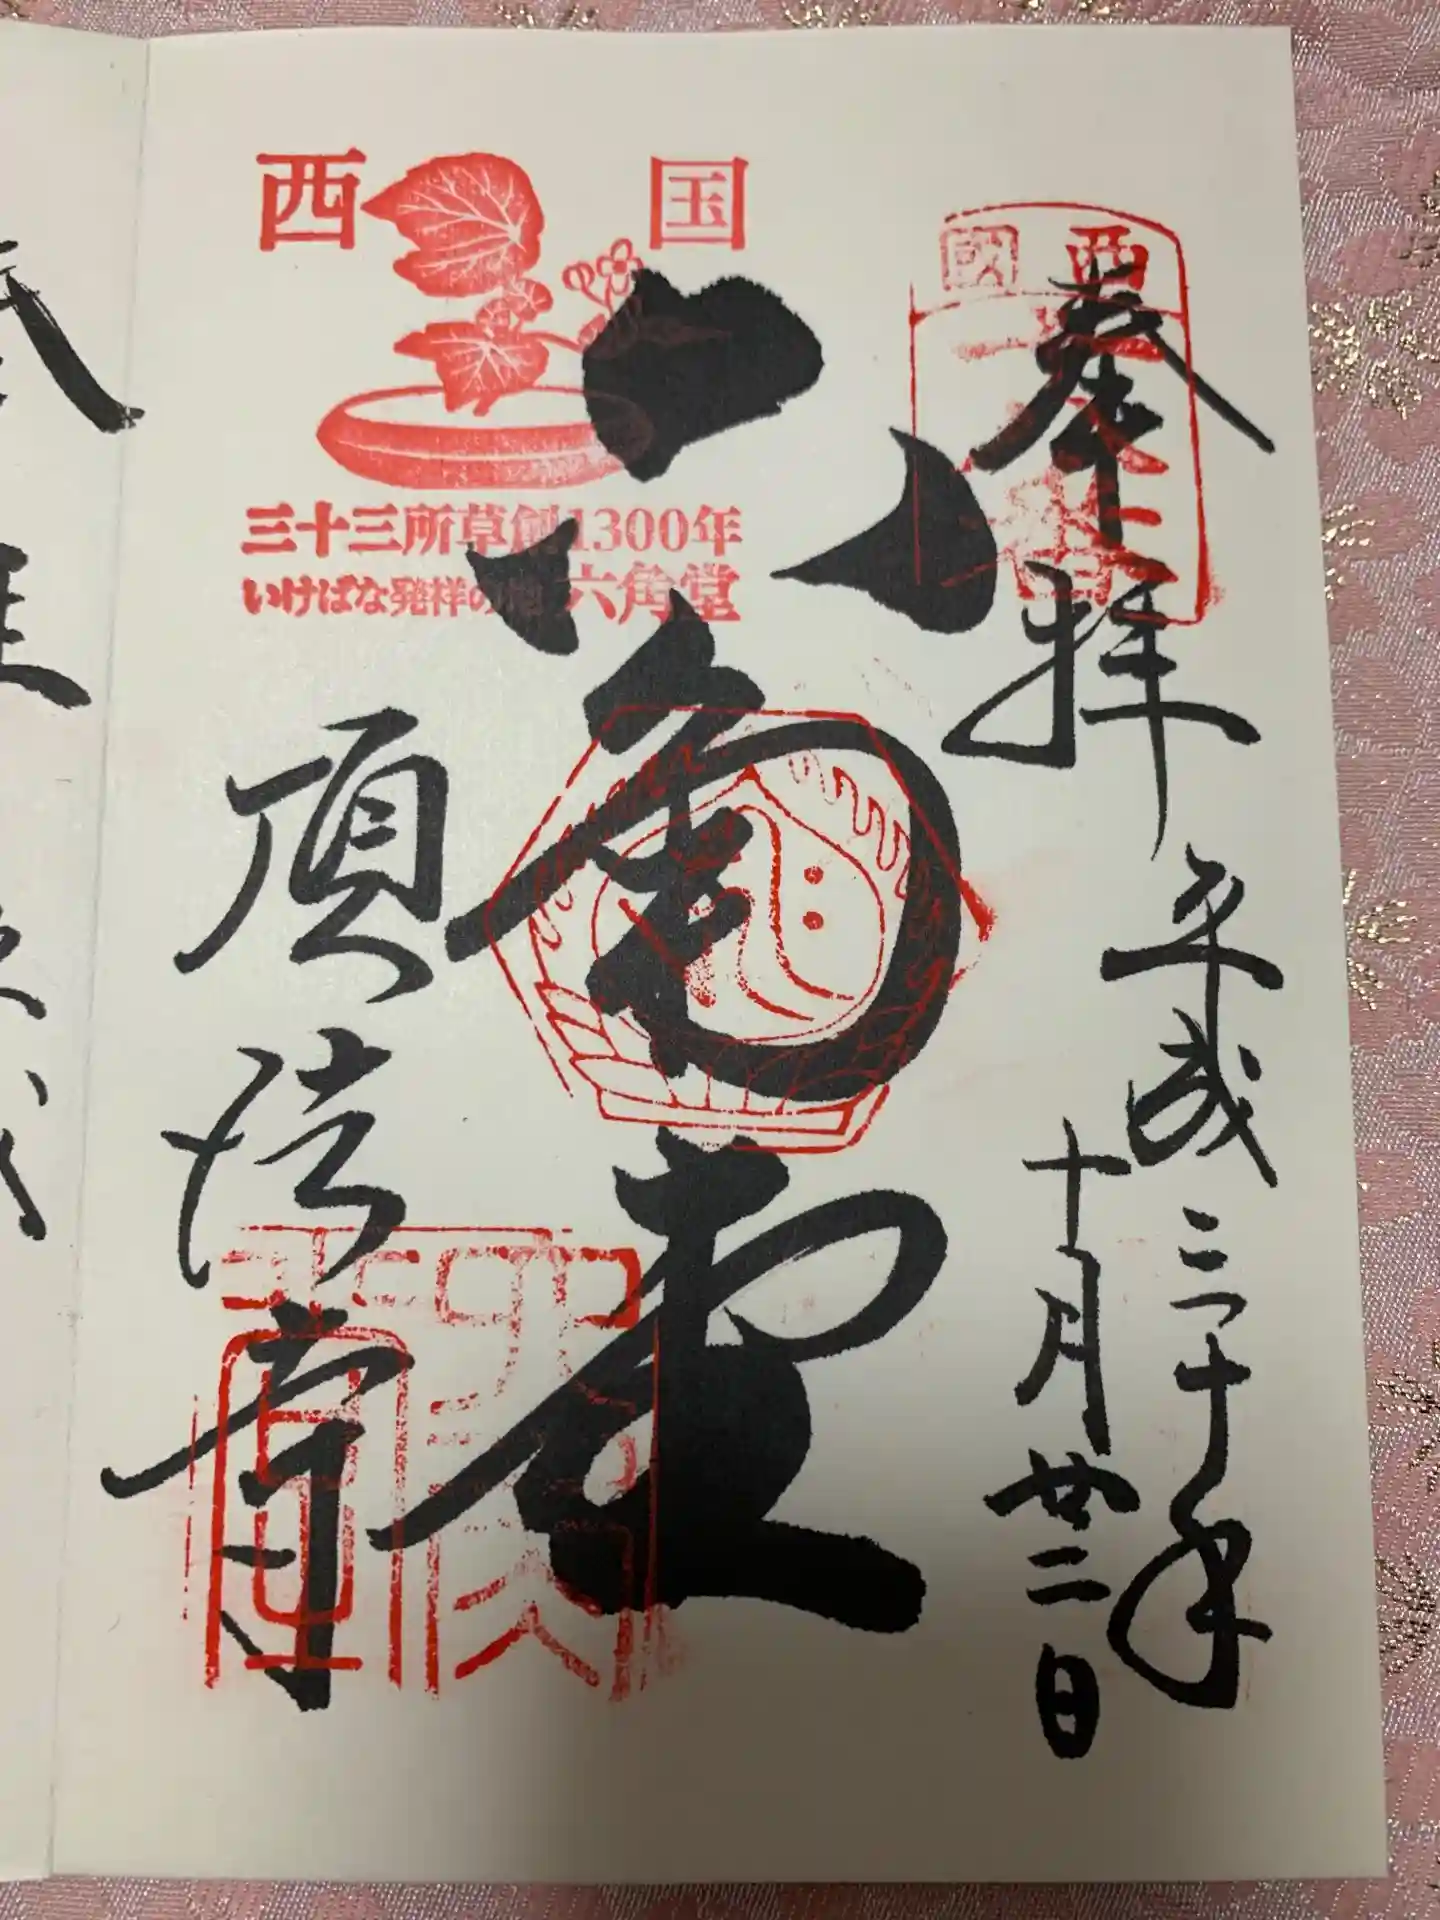 奉拝
平成三十年
十月廿二日
西國
六角堂
西国
三十三所草創1300年
いけばな発祥の地 六角堂
頂法寺